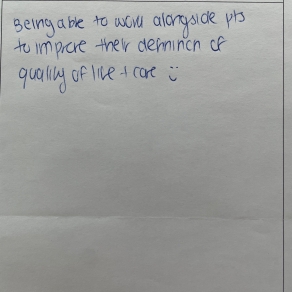 Being able to work alongside pts
to improve their definition of
quality of life + care :)